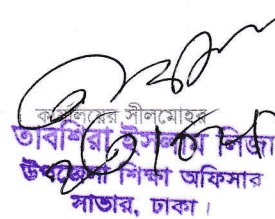 কার্যালয়ের সীলমোহর
তাবশিরা ইসলাম লিজা
উপজেলা শিক্ষা অফিসার
সাভার, ঢাকা।